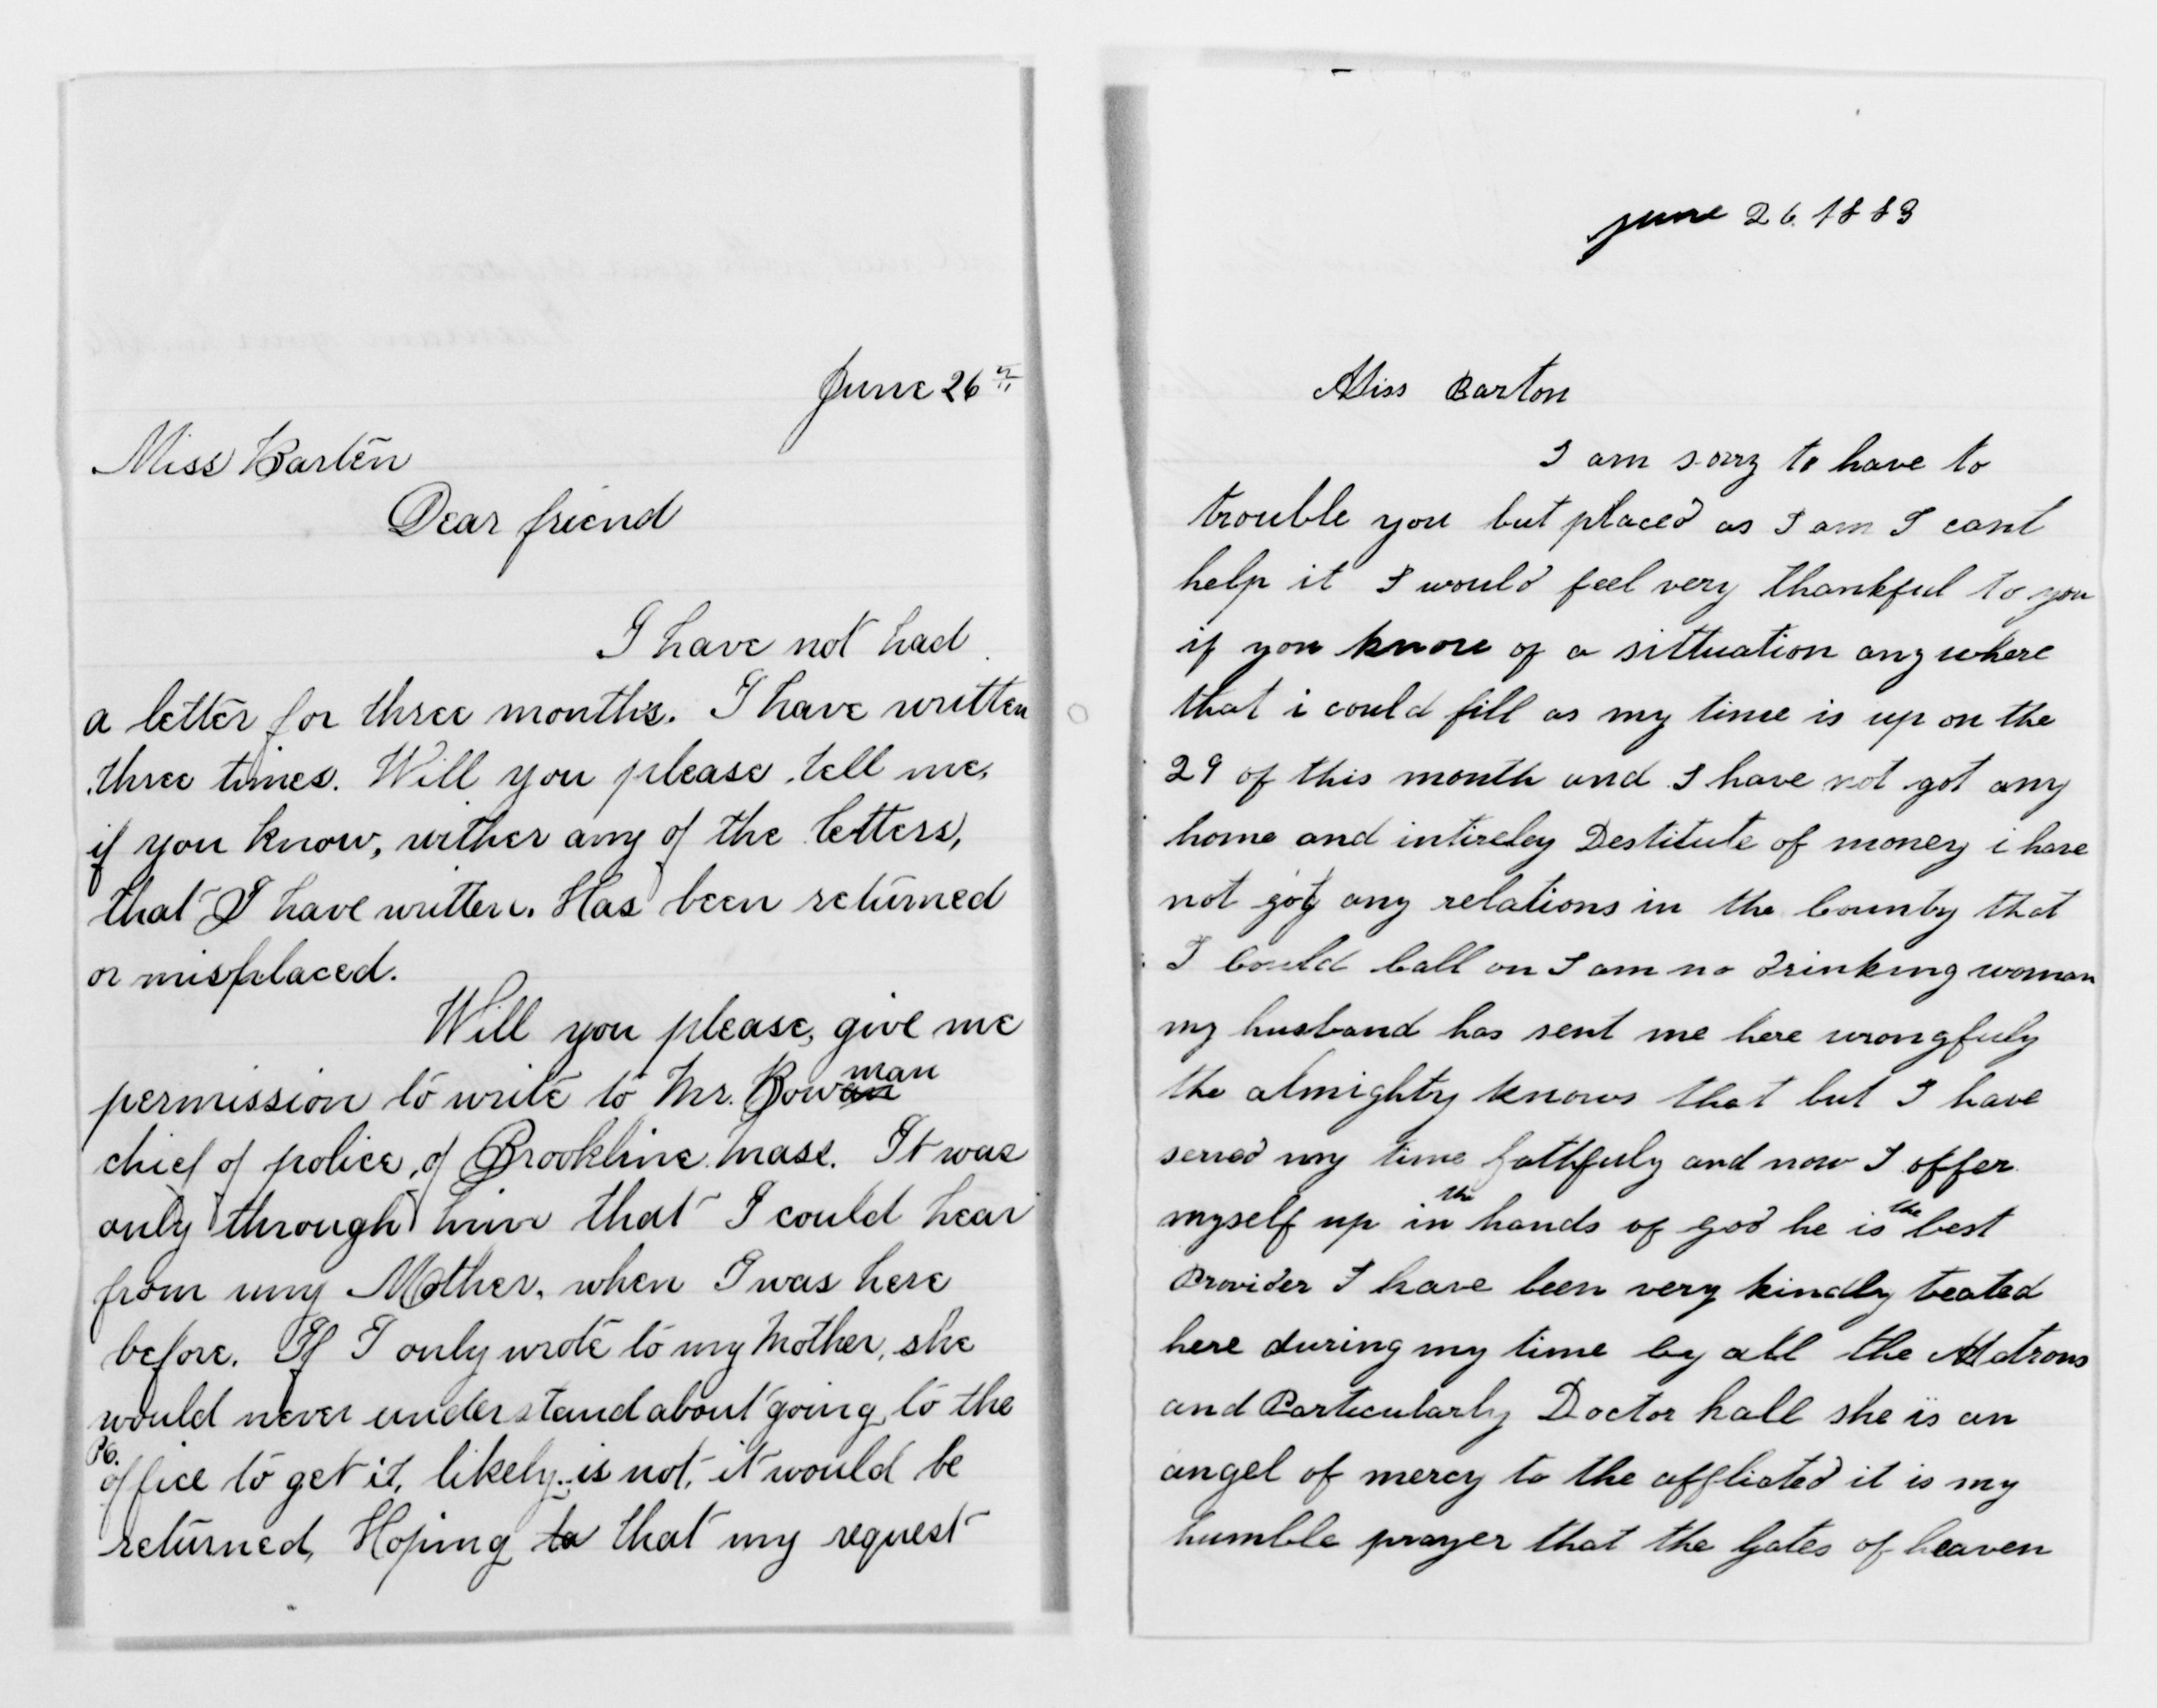 June 26th
Miss Barten
Dear friend
I have not had
a letter for three months. I have written
three times. Will you please tell me,
if you know, wither any of the letters,
that I have written. Has been returned
or misplaced.
Will you please, give me
permission to write to Mr. Bowan man
chief of police, of Brookline Mass. It was
only through him that I could hear
from my Mother, when I was here
before. If I only wrote to my Mother, she
would never understand about going to the
P.O.
office to get it, likely is not, it would be
returned, Hoping to that my request
june 26. 1883
Miss Barton
I am sorry to have to
trouble you but placed as I am I cant
help it I would feel very thankful to you
if you know of a sittuation any where
that i could fill as my time is up on the
29 of this month and I have not got any
home and intireley Destitute of money i have
not got any relations in the County that
I Could Call on I am no drinking woman
my husband has sent me here wrongfuly
the almighty knows that but I have
served my time fathfuly and now I offer
myself up in the hands of god he is the best
Provider I have been very kindly treated
here during my time by all the Matrons
and Particularly Doctor hall she is an
angel of mercy to the afflicted it is my
humble prayer that the Gates of heaven